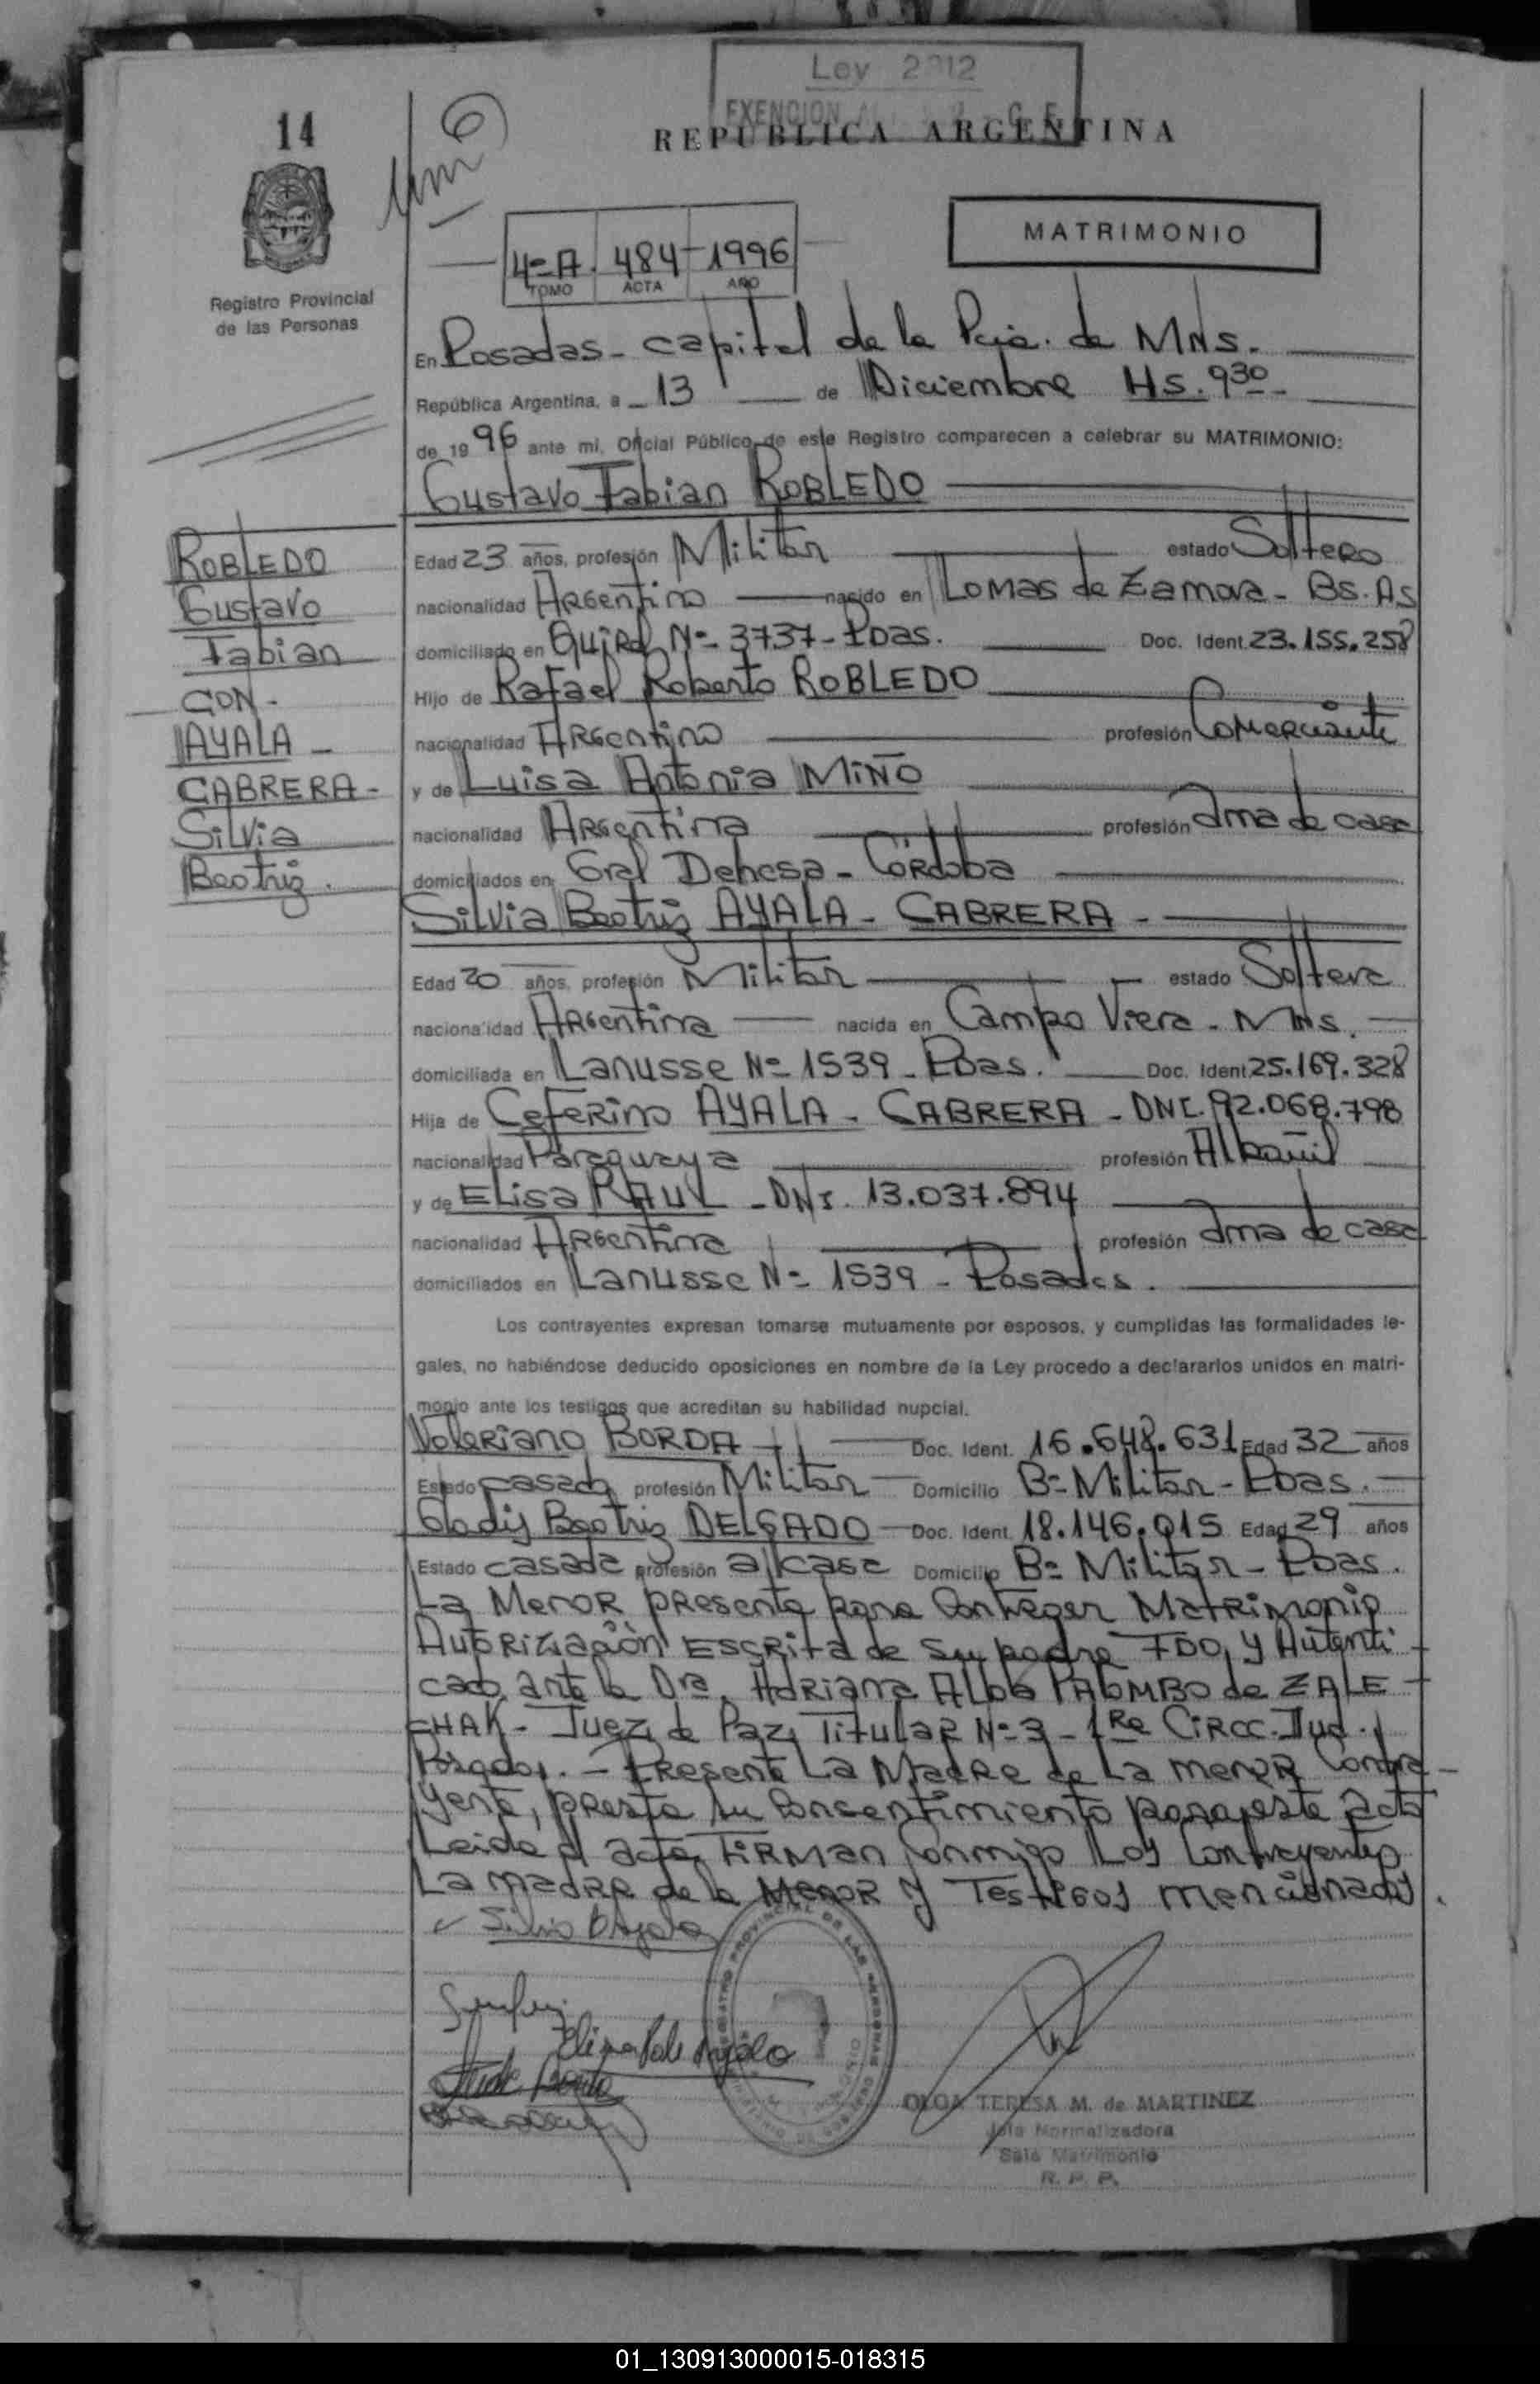 Ley 2812
EXENCION
14
REPUBLICA ARGENTINA
MATRIMONIO
4º A. 484 - 1996
TOMO ACTA AÑO
Registro Provincial
de las Personas
En Posadas - capital de la Pcia. de MNS.
República Argentina, a 13 de Diciembre Hs. 9 30 -
de 19 96 ante mi, Oficial Público de este Registro comparecen a celebrar su MATRIMONIO:
Gustavo Fabian ROBLEDO
ROBLEDO
Gustavo
Fabian
CON -
AYALA -
CABRERA -
Silvia
Beatriz.
Edad 23 años, profesión Militar estado Soltero
nacionalidad Argentino nacido en Lomas de Zamora - Bs. As
domiciliado en Nº 3737 - Pdas. Doc. Ident. 23.155.258
Hijo de Rafael Roberto ROBLEDO
nacionalidad Argentino profesión Comerciante
y de Luisa Antonia MIÑO
nacionalidad Argentina profesión Ama de casa
domiciliados en Gral Dehesa - Córdoba
Silvia Beatriz AYALA - CABRERA -
Edad 20 años, profesión Militar estado Soltera
nacionalidad Argentina nacida en Campo Viera - Mns.
domiciliada en Lanusse Nº 1539 - Pdas. Doc. Ident. 25.169.328
Hija de Ceferino AYALA - CABRERA - DNI. 92.068.798
nacionalidad Paraguaya profesión Albañil
y de Elisa RAUL - DNI. 13.037.894
nacionalidad Argentina profesión Ama de casa
domiciliados en Lanusse Nº 1539 - Posadas.
Los contrayentes expresan tomarse mutuamente por esposos, y cumplidas las formalidades le-
gales, no habiéndose deducido oposiciones en nombre de la Ley procedo a declararlos unidos en matri-
monio ante los testigos que acreditan su habilidad nupcial.
Valeriano BORDA Doc. Ident. 16.648.631 Edad 32 años
Estado casado profesión Militar Domicilio Bº Militar - Pdas.
Gladis Beatriz DELGADO Doc. Ident. 18.146.015 Edad 29 años
Estado casada profesión a/casa Domicilio Bº Militar - Pdas.
La Menor presenta para Contraer Matrimonio
Autorización Escrita de su padre FDO, y Autenti
cado, ante la Dra. Adriana Alba PALOMBO de ZALE -
CHAK - Juez de Paz, Titular Nº 3 - 1ra Circc. Jud.
Posadas. - Presente La Madre de La menor Contra -
yente, presta su consentimiento para este acto
Leida el acta, Firman conmigo Los Contrayentes
La madre de la Menor y Testigos mencionados.
OLGA TERESA M. de MARTINEZ
Jefa Normalizadora
Sala Matrimonio
R. P. P.
01_130913000015-018315